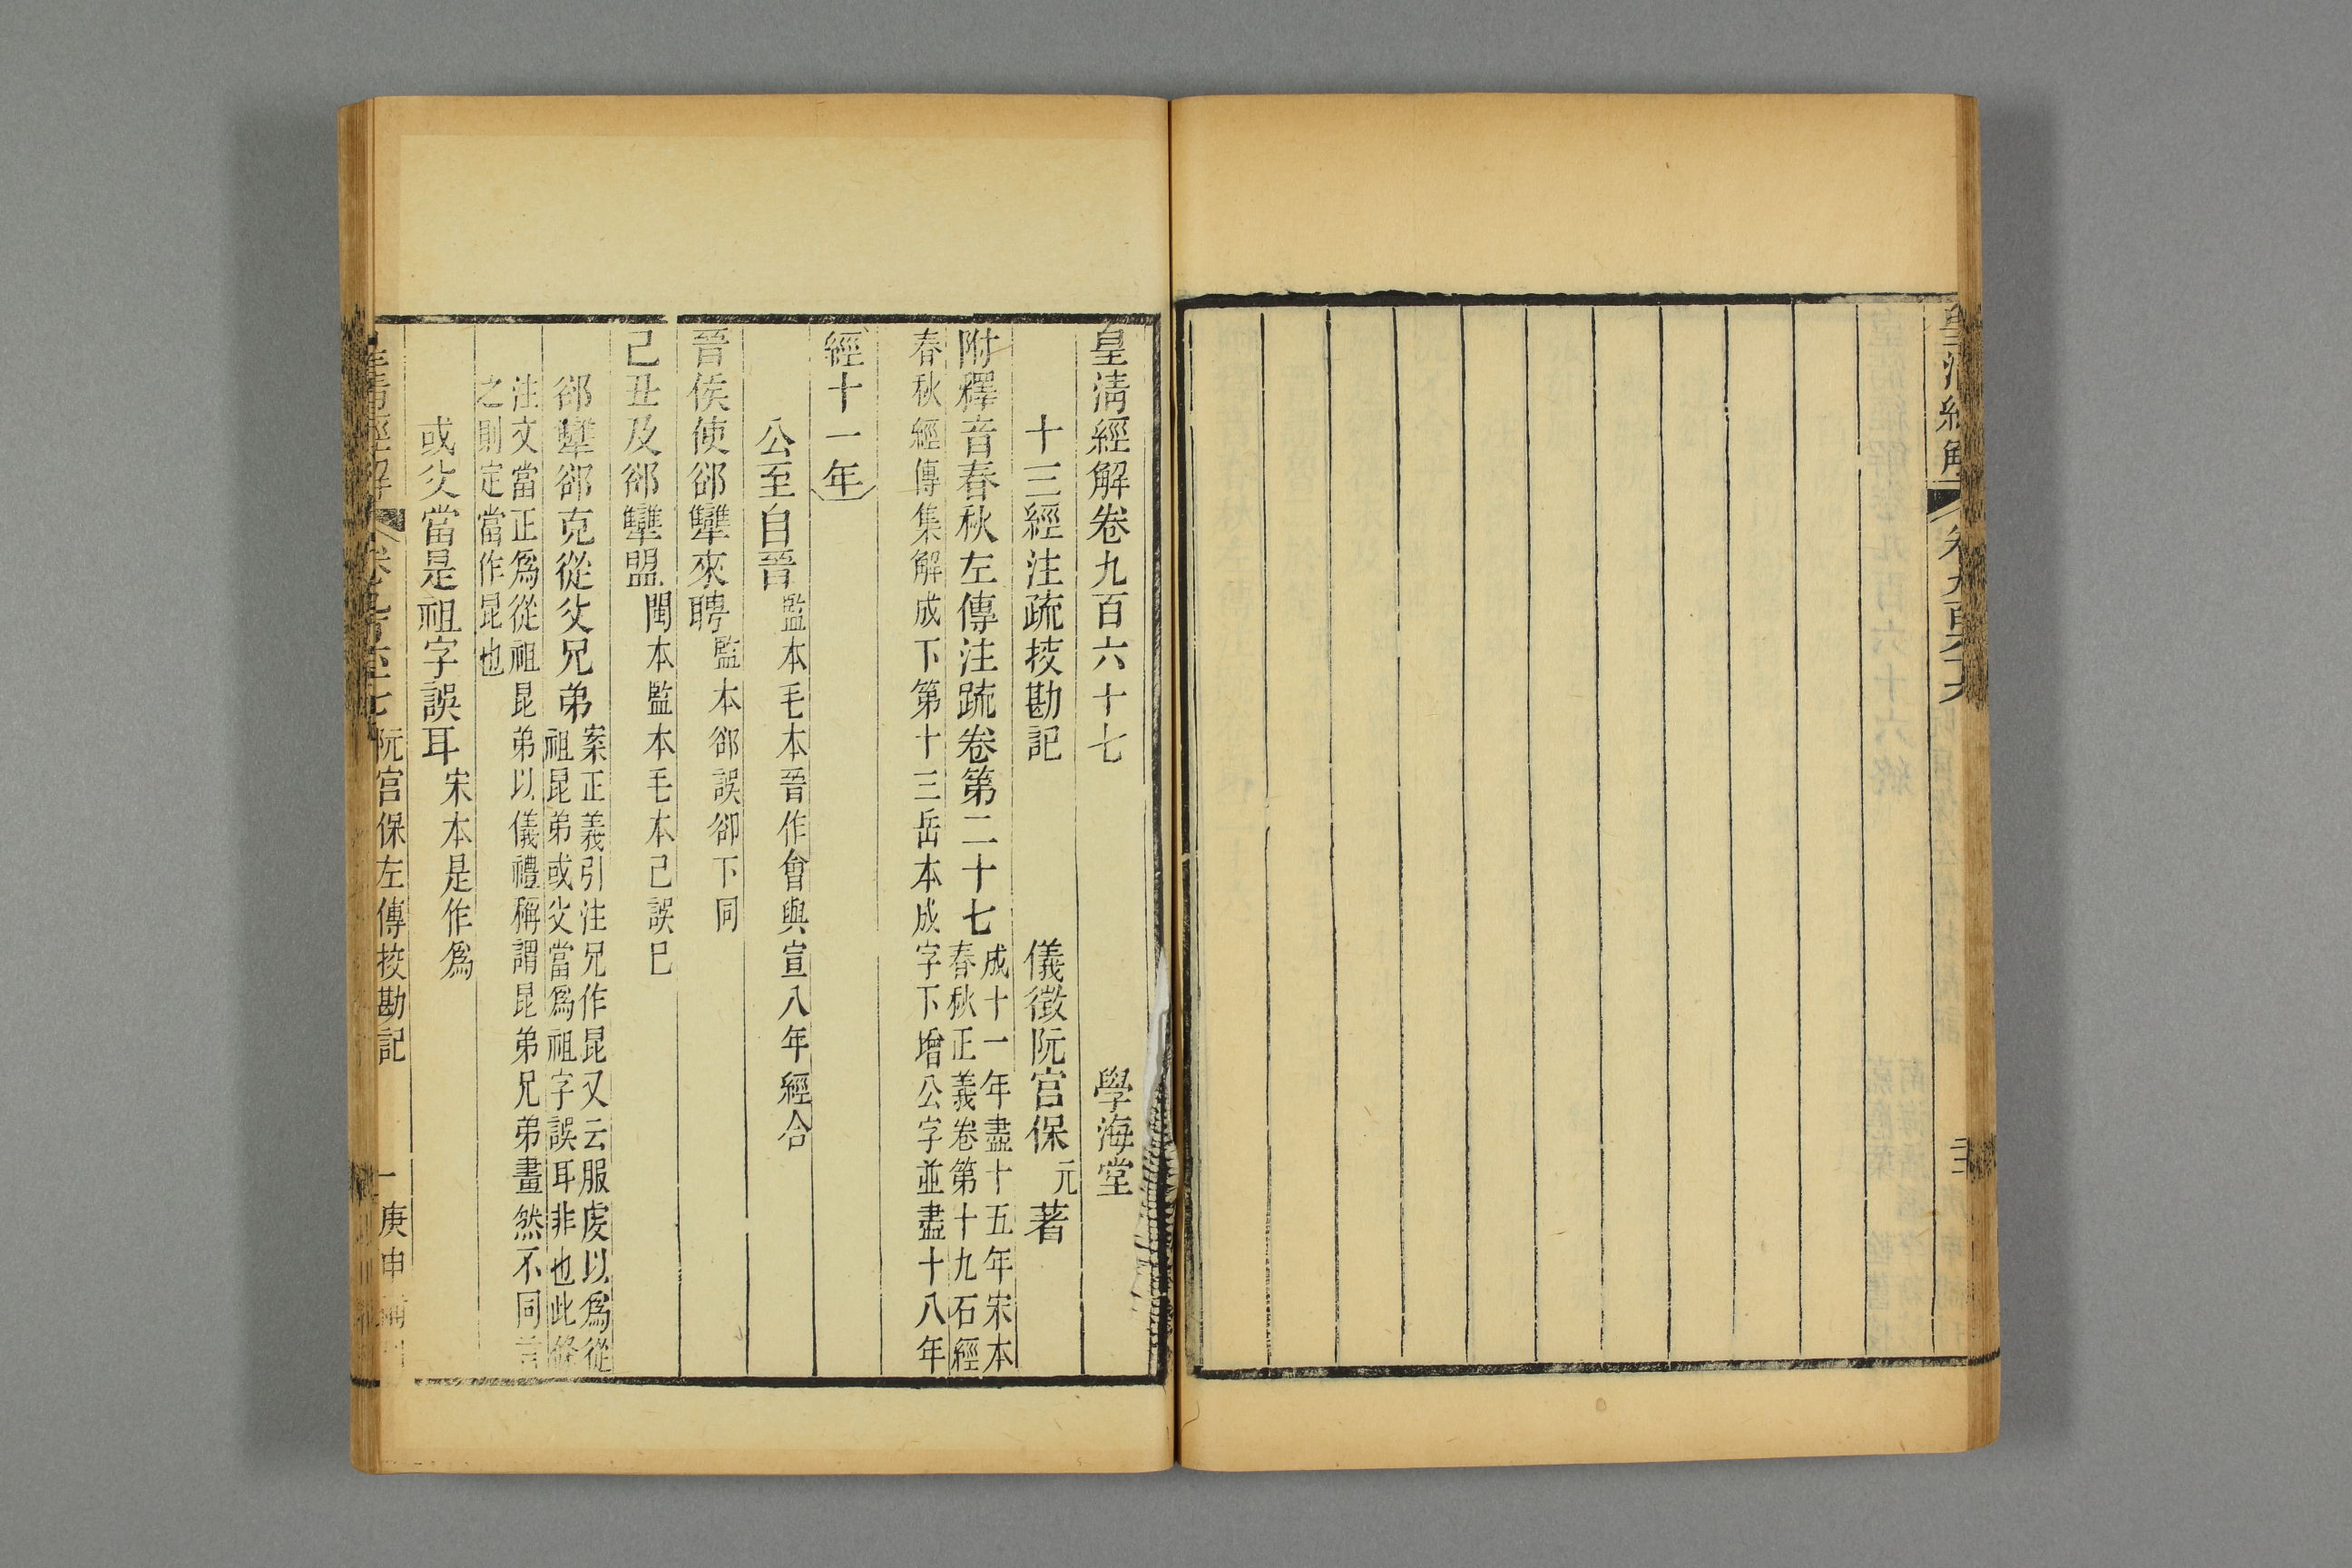 皇清經解卷九百六十七
學海堂
十三經注疏挍勘記
儀徵阮宮保元著
附釋音春秋左傳注疏卷第二十七
成十一年盡十五年宋本
春秋正義卷第十九石經
春秋經傳集解成下第十三岳本成字下增公字並盡十八年
經十一年
公至自晉
監本毛本晉作會與宣八年經合
晉侯使郤犨來聘
監本郤誤卻下同
己丑及郤犨盟
閩本監本毛本己誤巳
郤犨郤克從父兄弟
案正義引注兄作昆又云服虔以爲從
祖昆弟或父當爲祖字誤耳非也此條
注文當正爲從祖昆弟以儀禮稱謂昆弟兄弟畫然不同言
之則定當作昆也
或父當是祖字誤耳
宋本是作爲
皇清經解
卷九百六十七
阮宮保左傳挍勘記
一
庚申補刊